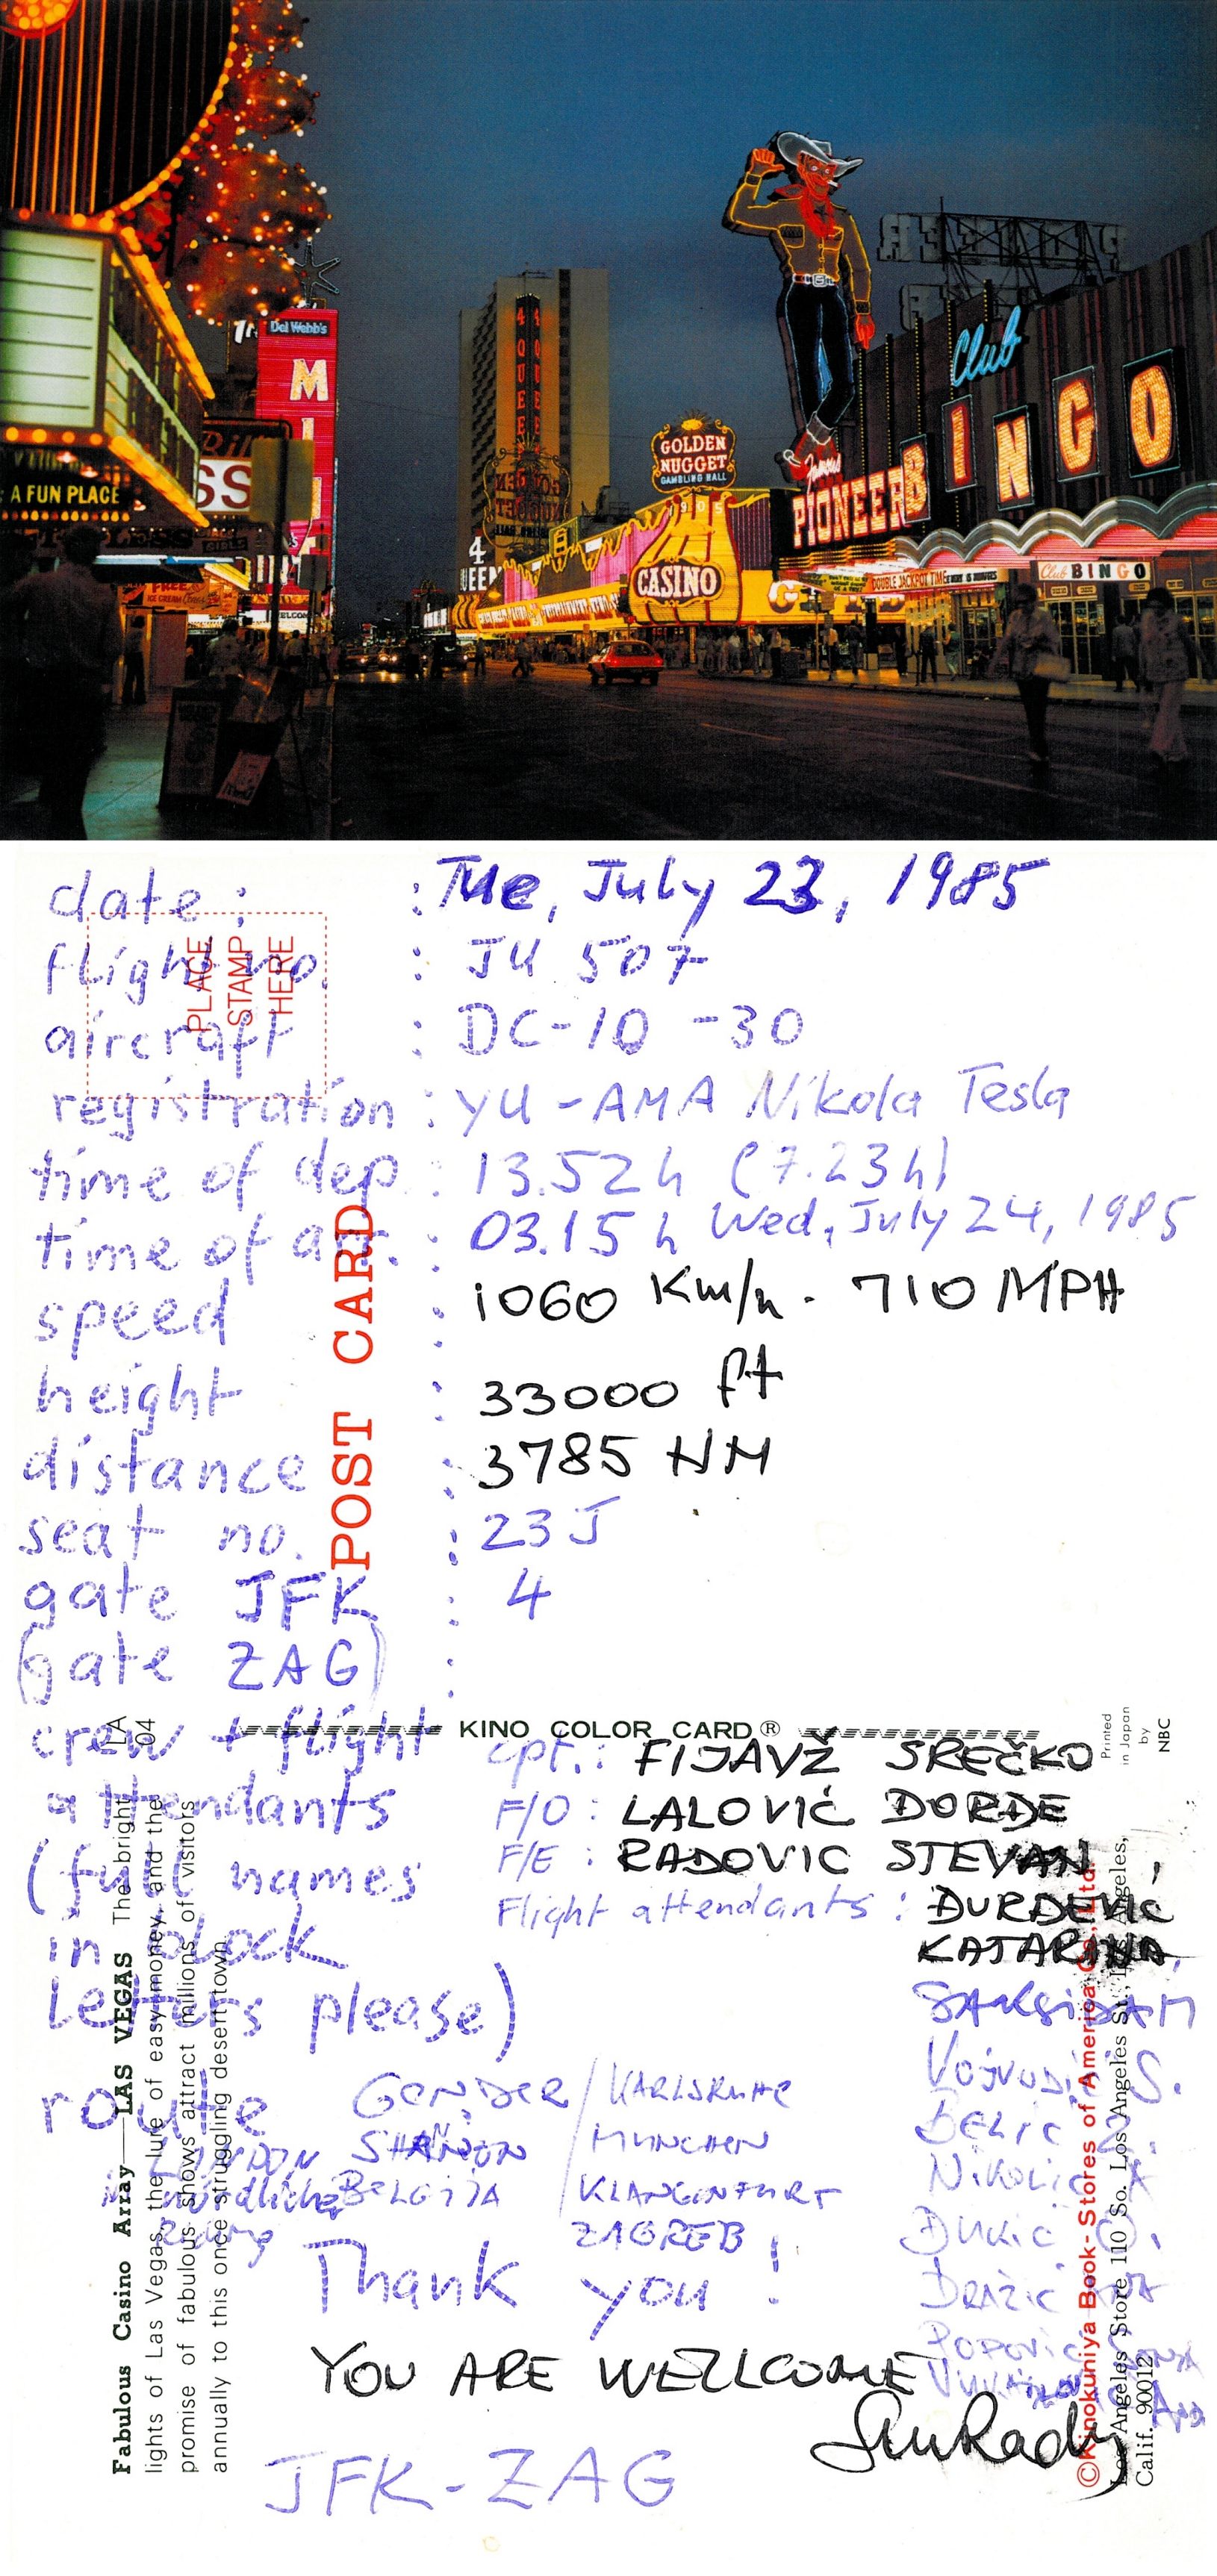 Del Webb's
M
I
A FUN PLACE
SS
4 QUEE
4 QUEE
4
UEEN
GOLDEN
NUGGET
GAMBLING HALL
1905
CASINO
Famous
PIONEER
Club
BINGO
DOUBLE JACKPOT TIME
Club BINGO
date : : Tue, July 23, 1985
flight no. : JU 507
aircraft : DC-10 -30
registration : YU-AMA Nikola Tesla
time of dep. : 13.52 h (7.23 h)
time of arr. : 03.15 h Wed, July 24, 1985
speed : 1060 Km/h - 710 MPH
height : 33000 ft
distance : 3785 NM
seat no. : 23 J
gate JFK : 4
(gate ZAG) :
crew + flight
attendants
(full names
in block
letters please)
cpt. : FIJAVŽ SREČKO
F/O : LALOVIĆ ĐORĐE
F/E : RADOVIC STEVAN,
Flight attendants : ĐURĐEVIĆ
KATARINA,
SAKSIDA M
VOJVODIĆ S.
BELIC
NIKOLIC
DUKIC O.
DRAZIC
POPOVIC
route
GENDER / KARLSRUHE
LONDON SHANNON / MUNCHEN
nördliche BELGIJA / KLANGENFURT
ZAGREB
Thank you !
YOU ARE WELLCOME
JFK - ZAG
PLACE
STAMP
HERE
POST CARD
KINO COLOR CARD®
Printed
in Japan
by
NBC
LA
04
Fabulous Casino Array—LAS VEGAS The bright
lights of Las Vegas, the lure of easy money, and the
promise of fabulous shows attract millions of visitors
annually to this once struggling desert town.
©Kinokuniya Book-Stores of America Co., Ltd.
Los Angeles Store 110 So. Los Angeles St., Los Angeles,
Calif. 90012